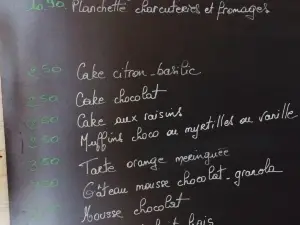 10,90. Planchette charcuteries et fromages
2,50 Cake citron-basilic
2,50 Cake chocolat
Cake aux raisins
2,50 Muffins choco ou myrtilles ou vanille
2,50 Tarte orange meringuée
Gâteau mousse chocolat-granola
Mousse chocolat